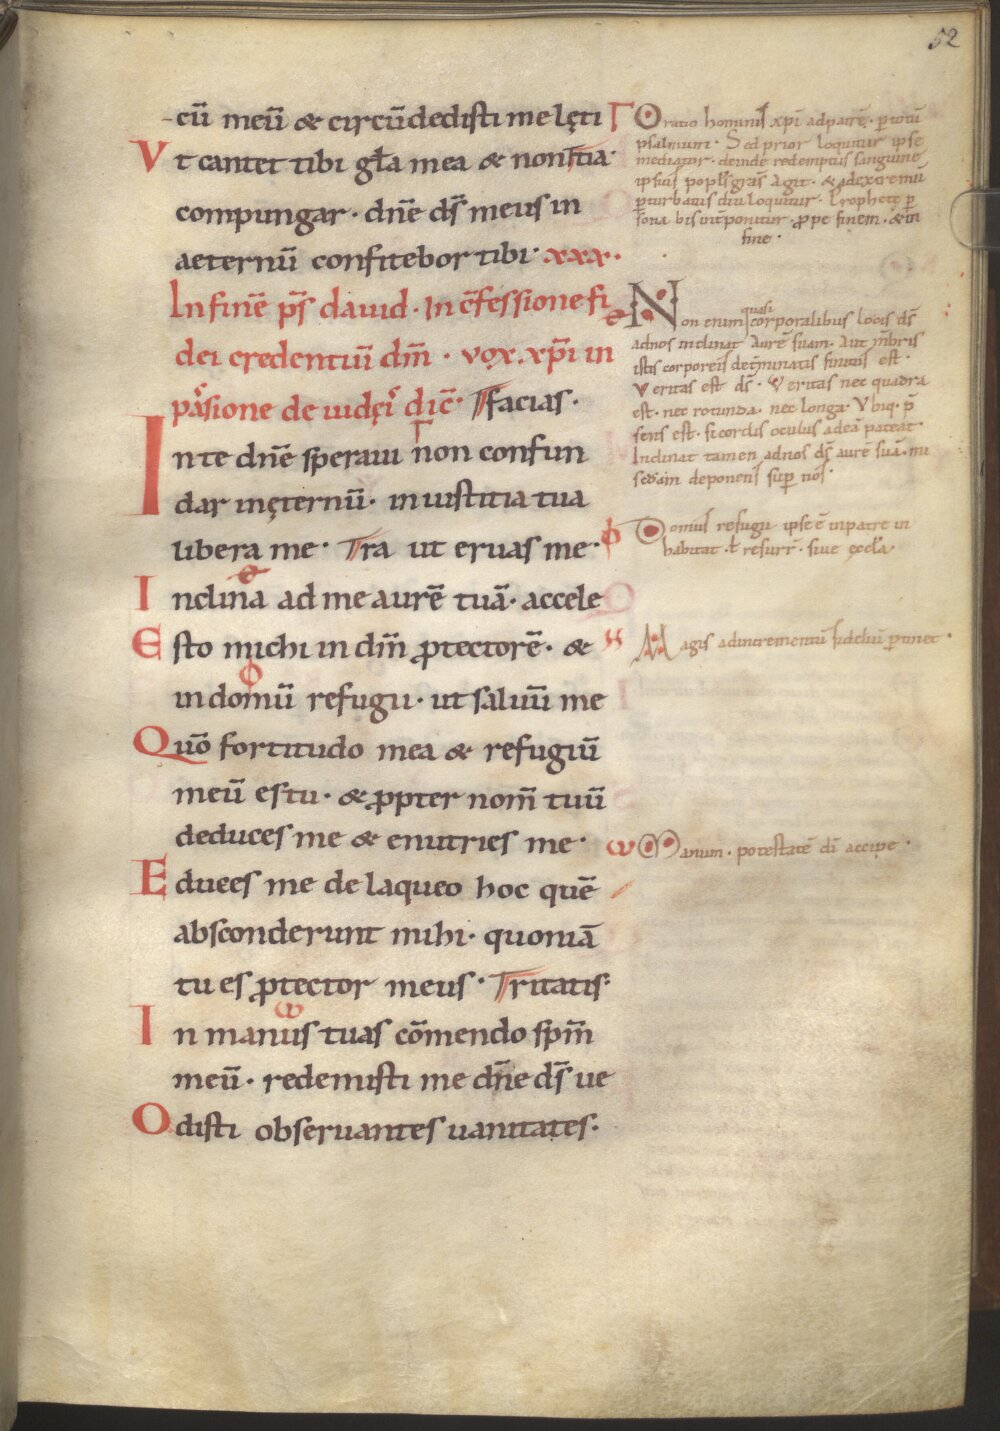 52
-cū meū & circūdedisti me lęti
Vt cantet tibi gła mea & non tia·
compungar · dn̄e ds̄ meus in
aeternū confitebor tibi· xxx·
In finē ps̄ dauid · In c̄fessione fi
dei credentiū dm̄ · vox · xp̄i in
passione de iudęis dic̄· facias·
In te dn̄e speraui non confun
dar in ęternū· in iustitia tua
libera me· ra ut eruas me·
Inclina ad me aurē tuā· accele
Esto michi in dm̄ ꝓtectorē· &
in domū refugii· ut saluū me
Quō fortitudo mea & refugiū
meū es tu· & ꝓpter nom̄ tuū
deduces me & enutries me·
Educes me de laqueo hoc quē
absconderunt mihi· quoniā
tu es ꝓtector meus· ritatis·
In manus tuas cōmendo spm̄
meū· redemisti me dn̄e ds̄ ue
Odisti obseruantes uanitates·
Γ Oratio hominis xp̄i ad patrē· ꝑ totū
psalmum· Sed prior loquitur ipse
mediator· deinde redemptus sanguine
ipsius popls gras̄ agit· & ad extremū
ꝑturbatus diu loquitur· Prophetę ꝑ
sona bis int̄ponitur · ꝓpe finem· & in
fine·
Non enim quasi corporalibus locis ds̄
ad nos inclinat aurē suam· Aut mēbris
istis corporeis det̄minatis finitus est·
Veritas est ds̄· Veritas nec quadra
est· nec rotunda· nec longa· Vbiq· p̄
sens est· si cordis oculus ad eā pateat·
Inclinat tamen ad nos ds̄ aurē suā· mi
sc̄dam deponens suꝑ nos·
ϕ Domus refugii ipse ē in patre in
habitat· ł resurr̄· siue ęccła·
Magis ad incrementū fideliū ꝑtinet·
ω Manum· potestatē di accipe·